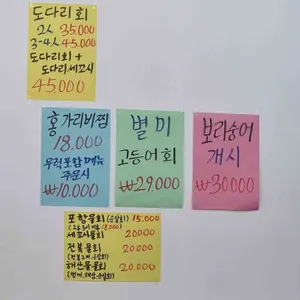 도다리회
2人 35.000
3-4人 45.000
도다리회 +
도다리세꼬시
45.000
홍가리비찜
18.000
우럭포함메뉴
주문시
₩10.000
별미
고등어회
₩29.000
보리숭어
개시
₩30000
포항물회(공깃밥) 15.000
세꼬시물회 20000
전복물회 20.000
해산물물회 20.000